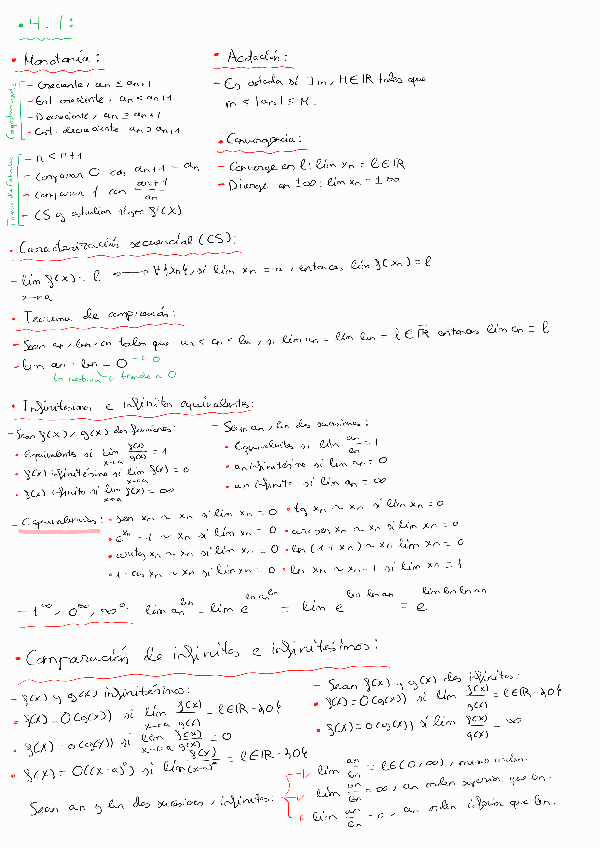 • 4.1:
• Monotonía:
Comportamiento
- Creciente, an ≤ an+1
- Est. creciente, an < an+1
- Decreciente, an ≥ an+1
- Est. decreciente an > an+1
Formas de estudiar
- n < n+1
- Comparar 0 con an+1 - an
- Comparar 1 con an+1/an
- CS y estudiar signo f'(x)
• Acotación:
- Es acotada si ∃ m, M ∈ ℝ tales que
m < |an| ≤ M.
• Convergencia:
- Converge en l: lím xn = l ∈ ℝ
- Diverge en ±∞: lím xn = ±∞
• Caracterización secuencial (CS):
- lím f(x) = l ⟺ ∀{xn}, si lím xn = a, entonces lím f(xn) = l.
x→a
• Teorema de compresión:
- Sean an, bn, cn tales que an < cn < bn, si lím an = lím bn = l ∈ ℝ entonces lím cn = l
- lím an · bn = 0 → 0
• Infinitésimos e infinitos equivalentes:
- Sean f(x), g(x) dos funciones:
• Equivalentes si lím x→a f(x)/g(x) = 1
• f(x) infinitésimo si lím x→a f(x) = 0
• f(x) infinito si lím x→a f(x) = ∞
- Sean an, bn dos sucesiones:
• Equivalentes si lím an/bn = 1
• an infinitésimo si lím an = 0
• an infinito si lím an = ∞
- Equivalencias: • sen xn ~ xn si lím xn = 0 • tg xn ~ xn si lím xn = 0
• e^xn - 1 ~ xn si lím xn = 0 • arcsen xn ~ xn si lím xn = 0
• arctg xn ~ xn si lím xn = 0 • ln (1 + xn) ~ xn lím xn = 0
• 1 - cos xn ~ xn si lím xn = 0 • ln xn ~ xn - 1 si lím xn = 1
- 1^∞, 0^∞, ∞^0: lím an^bn = lím e^(ln an^bn) = lím e^(bn ln an) = e^(lím bn ln an)
• Comparación de infinitos e infinitésimos:
- f(x) y g(x) infinitésimos:
• f(x) = O(g(x)) si lím x→a f(x)/g(x) = l ∈ ℝ - {0}
• f(x) = o(g(x)) si lím x→a f(x)/g(x) = 0
• f(x) = O((x-a)^n) si lím f(x)/(x-a)^n = l ∈ ℝ - {0}
- Sean f(x) y g(x) dos infinitos:
• f(x) = O(g(x)) si lím f(x)/g(x) = l ∈ ℝ - {0}
• f(x) = o(g(x)) si lím f(x)/g(x) = ∞
Sean an y bn dos sucesiones, infinitos:
lím an/bn = l ∈ (0, ∞), mismo orden.
lím an/bn = ∞, an orden superior que bn.
lím an/bn = 0, an orden inferior que bn.